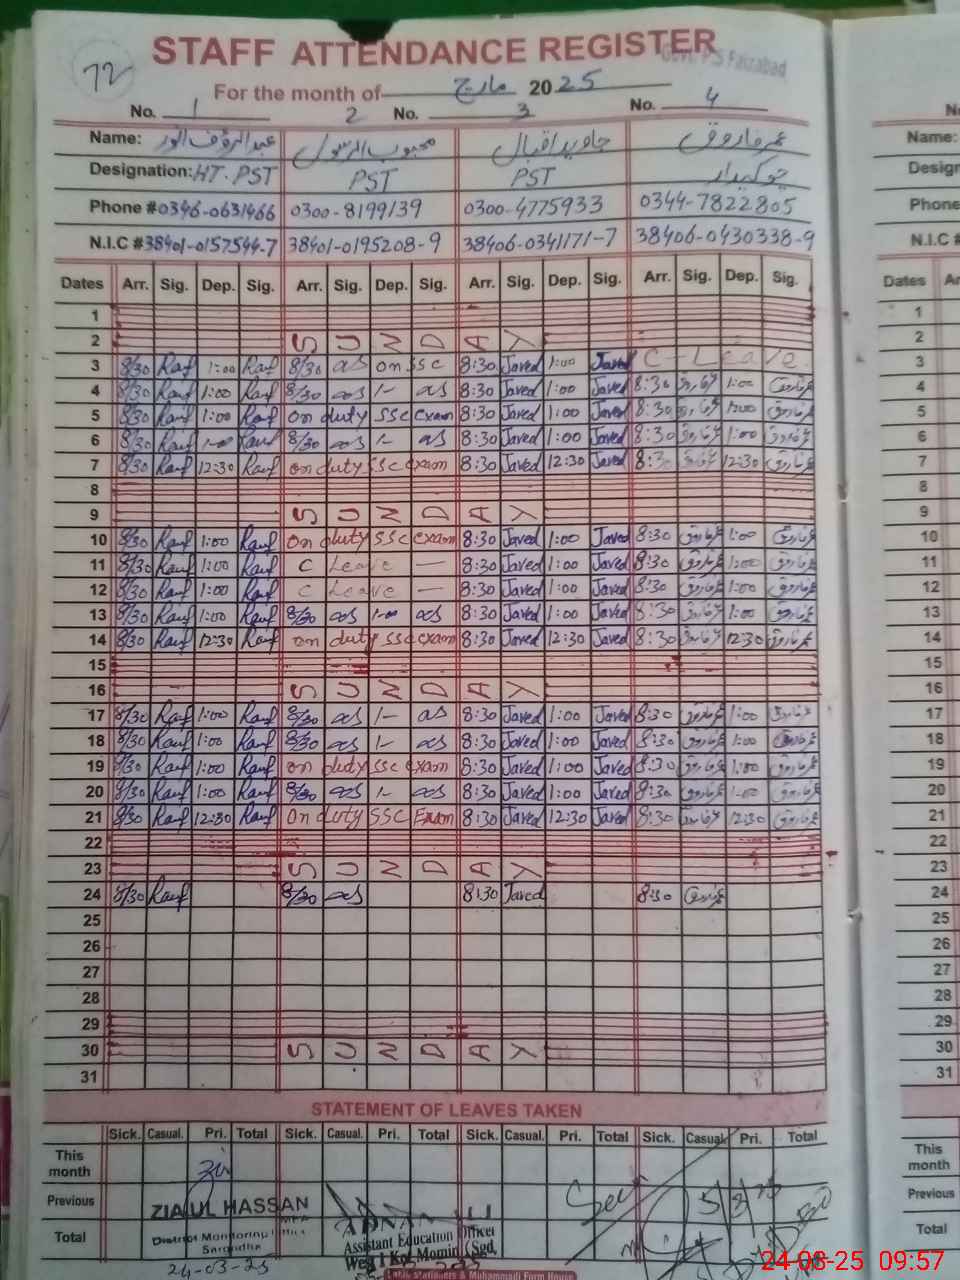 72
STAFF ATTENDANCE REGISTER
Govt. P/S Faizabad
For the month of مارچ 2025
No. 1 2 No. 3 No. 4
Name: عبدالرؤف انور محبوب الرسول جاوید اقبال عمر فاروق
Designation: HT. PST PST PST چوکیدار
Phone # 0346-0631466 0300-8199139 0300-4775933 0344-7822805
N.I.C # 38401-0157544-7 38401-0195208-9 38406-0341171-7 38406-0430338-9
Dates Arr. Sig. Dep. Sig. Arr. Sig. Dep. Sig. Arr. Sig. Dep. Sig. Arr. Sig. Dep. Sig.
1
2 S U N D A Y
3 8/30 Rauf 1:00 Rauf 8/30 as on SSC 8:30 Javed 1:00 Javed C-Leave
4 8/30 Rauf 1:00 Rauf 8/30 as 1- as 8:30 Javed 1:00 Javed 8:30 عمرفاروق 1:00 عمرفاروق
5 8/30 Rauf 1:00 Rauf on duty SSC exam 8:30 Javed 1:00 Javed 8:30 عمرفاروق 1:00 عمرفاروق
6 8/30 Rauf 1:00 Rauf 8/30 as 1- as 8:30 Javed 1:00 Javed 8:30 عمرفاروق 1:00 عمرفاروق
7 8/30 Rauf 12:30 Rauf on duty SSC exam 8:30 Javed 12:30 Javed 8:30 عمرفاروق 12:30 عمرفاروق
8
9 S U N D A Y
10 8/30 Rauf 1:00 Rauf On duty SSC exam 8:30 Javed 1:00 Javed 8:30 عمرفاروق 1:00 عمرفاروق
11 8/30 Rauf 1:00 Rauf C Leave — 8:30 Javed 1:00 Javed 8:30 عمرفاروق 1:00 عمرفاروق
12 8/30 Rauf 1:00 Rauf C Leave — 8:30 Javed 1:00 Javed 8:30 عمرفاروق 1:00 عمرفاروق
13 8/30 Rauf 1:00 Rauf 8/30 as 1-00 as 8:30 Javed 1:00 Javed 8:30 عمرفاروق 1:00 عمرفاروق
14 8/30 Rauf 12:30 Rauf on duty SSC exam 8:30 Javed 12:30 Javed 8:30 عمرفاروق 12:30 عمرفاروق
15
16 S U N D A Y
17 8/30 Rauf 1:00 Rauf 8/30 as 1- as 8:30 Javed 1:00 Javed 8:30 عمرفاروق 1:00 عمرفاروق
18 8/30 Rauf 1:00 Rauf 8/30 as 1- as 8:30 Javed 1:00 Javed 8:30 عمرفاروق 1:00 عمرفاروق
19 8/30 Rauf 1:00 Rauf on duty SSC exam 8:30 Javed 1:00 Javed 8:30 عمرفاروق 1:00 عمرفاروق
20 8/30 Rauf 1:00 Rauf 8/30 as 1- as 8:30 Javed 1:00 Javed 8:30 عمرفاروق 1:00 عمرفاروق
21 8/30 Rauf 12:30 Rauf On duty SSC Exam 8:30 Javed 12:30 Javed 8:30 عمرفاروق 12:30 عمرفاروق
22
23 S U N D A Y
24 8/30 Rauf 8/30 as 8:30 Javed 8:30 عمرفاروق
25
26
27
28
29
30 S U N D A Y
31
STATEMENT OF LEAVES TAKEN
Sick. Casual. Pri. Total Sick. Casual. Pri. Total Sick. Casual. Pri. Total Sick. Casual Pri. Total
This month
Previous
Total
ZIA UL HASSAN
District Monitoring Office
Sargodha
24-03-25
ADNAN ALI
Assistant Education Officer
West 1 Kot Momin (Sgd,
Seen
Latif Stationers & Muhammadi Form House
24-08-25 09:57
Name:
Phone
N.I.C #
Dates
1
2
3
4
5
6
7
8
9
10
11
12
13
14
15
16
17
18
19
20
21
22
23
24
25
26
27
28
29
30
31
This month
Previous
Total